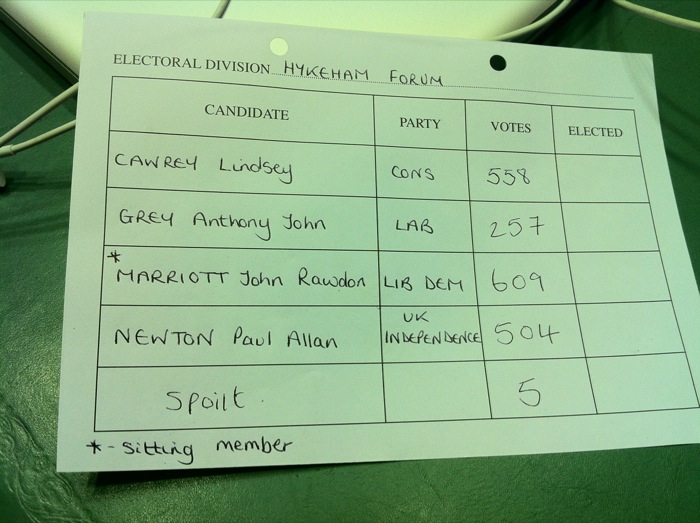 ELECTORAL DIVISION HYKEHAM FORUM
CANDIDATE PARTY VOTES ELECTED
CAWREY Lindsey CONS 558
GREY Anthony John LAB 257
* MARRIOTT John Rawdon LIB DEM 609
NEWTON Paul Allan UK INDEPENDENCE 504
Spoilt 5
* - sitting member